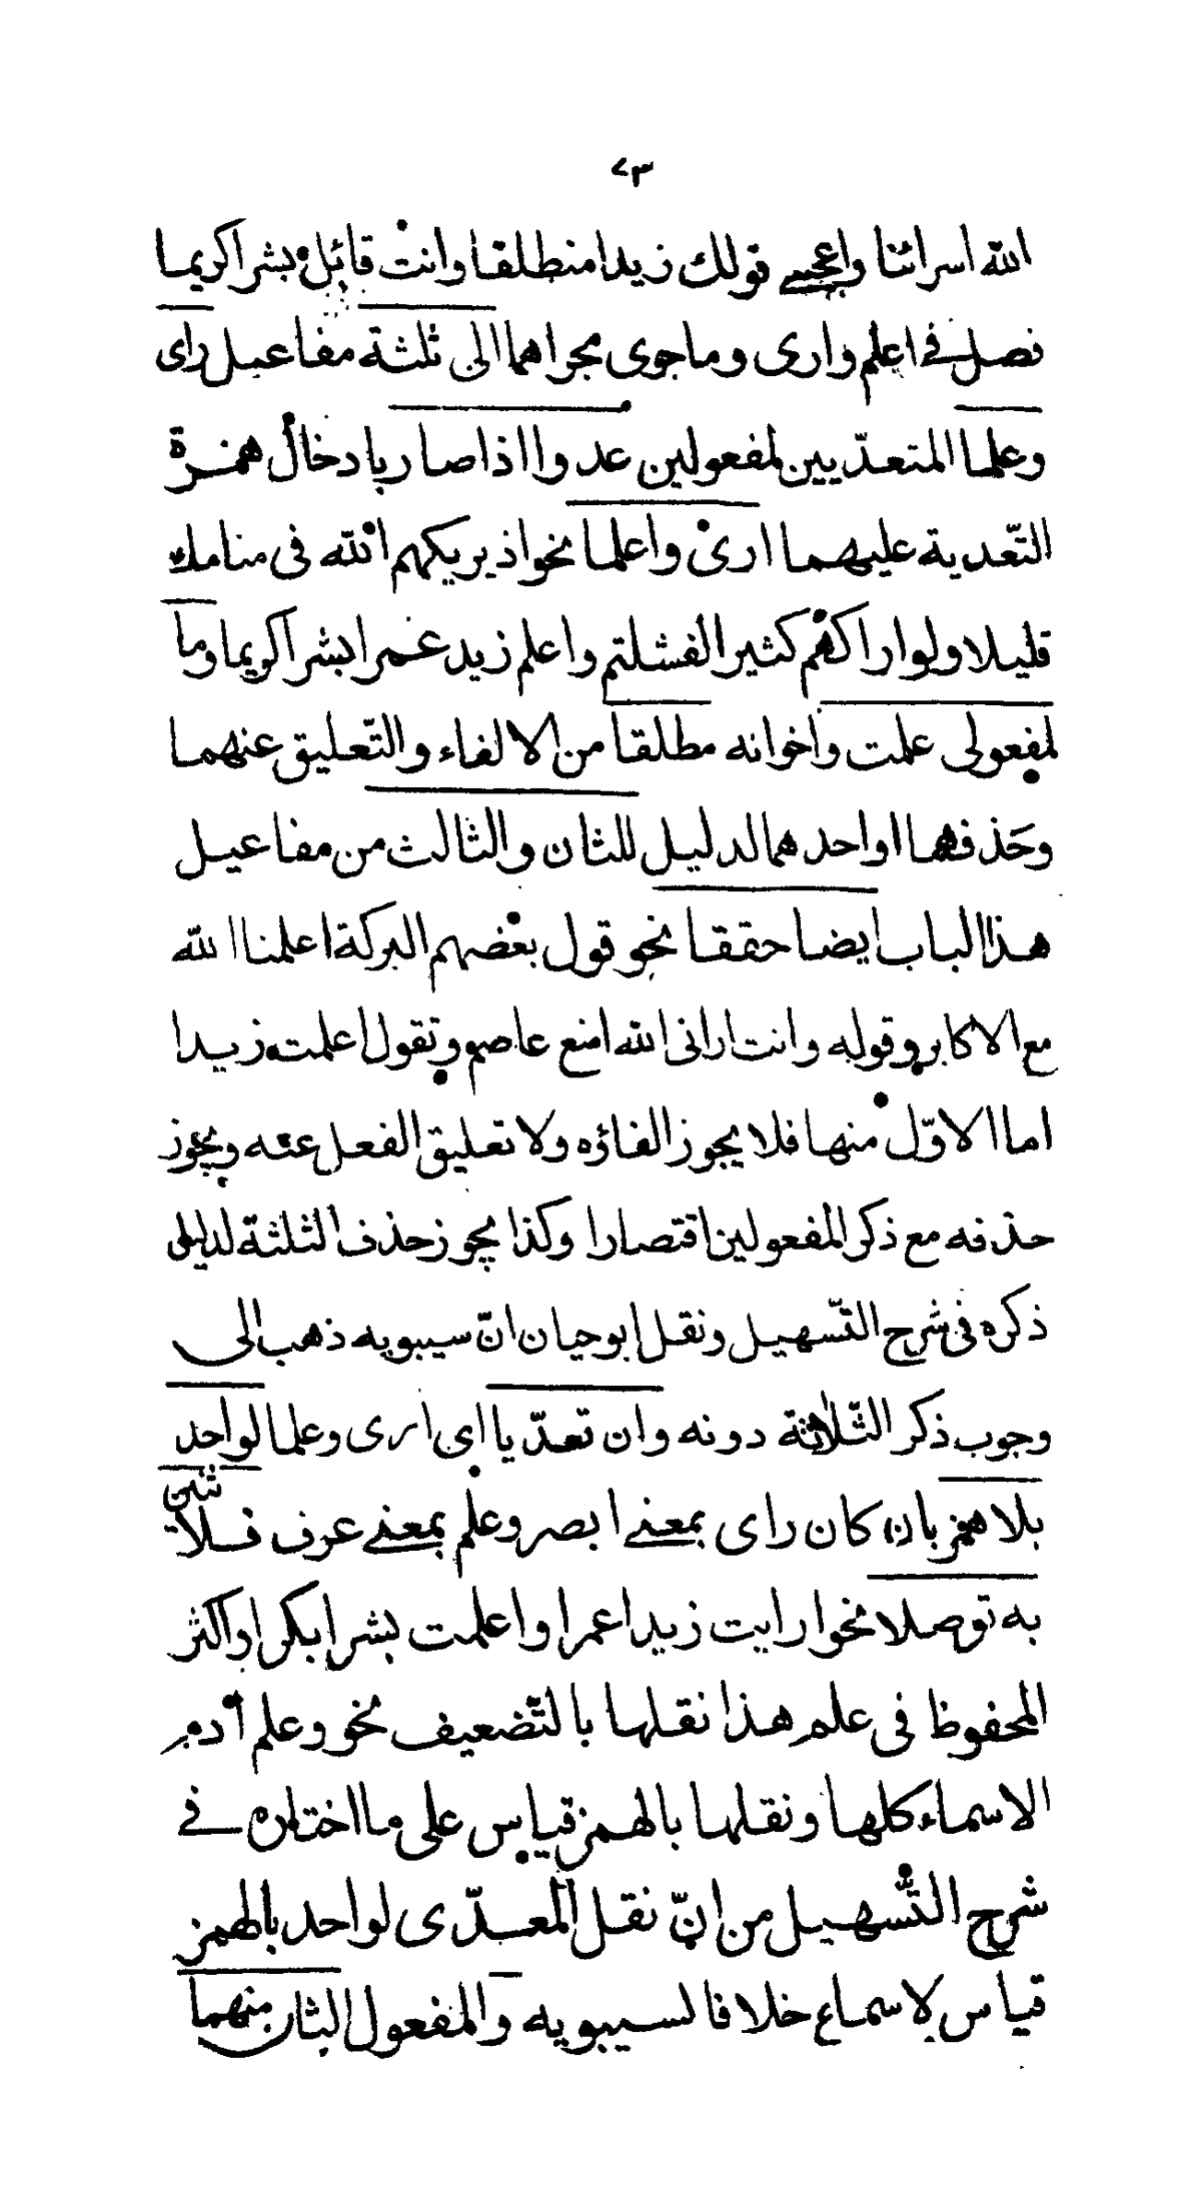 ٧٣
الله اسرائنا واعجبے قولك زيدا منطلقا وانت قائل بشرا كريما
فصل فے اعلم وارى وما جرى مجراهما الى ثلثة مفاعيل راى
وعلما المتعدّيين لمفعولين عدوا اذا صاريا دخال همزة
التّعدية عليهما ارىٰ واعلما نحو اذ يريكهم الله فى منامك
قليلا ولو اراكهم كثيرا لفشلتم واعلم زيد عمرا بشرا كريما وما
لمفعولى علمت واخواته مطلقا من الالغاء والتّعليق عنهما
وحَذفهما او احدهما لدليل للثان والثالث من مفاعيل
هذا الباب ايضا حققا نحو قول بعضهم البركة اعلمنا الله
مع الاكابر وقوله وانت ارانى الله امنع عاصم وتقول اعلمت زيدا
اما الاوّل منها فلا يجوز الغاؤه ولا تعليق الفعل عنه ويجوز
حذفه مع ذكر المفعولين اقتصارا وكذا يجوز حذف الثلثة لدليل
ذكره فى شرح التّسهيل ونقل ابو حيان انّ سيبويه ذهب الى
وجوب ذكر الثّلاثة دونه وان تعدّيا اى ارى وعلما لواحد
بلا همز بان كان راى بمعنے ابصر وعلم بمعنے عرف فلاثنين
به توصلا نحو ارايت زيدا عمرا واعلمت بشرا بكرا واكثر
المحفوظ فى علم هذا نقلها بالتّضعيف نحو وعلم آدم
الاسماء كلها ونقلها بالهمز قياس على ما اختاره فے
شرح التّسهيل من انّ نقل المعدّى لواحد بالهمز
قياس لا سماع خلافا لسيبويه والمفعول الثان منهما